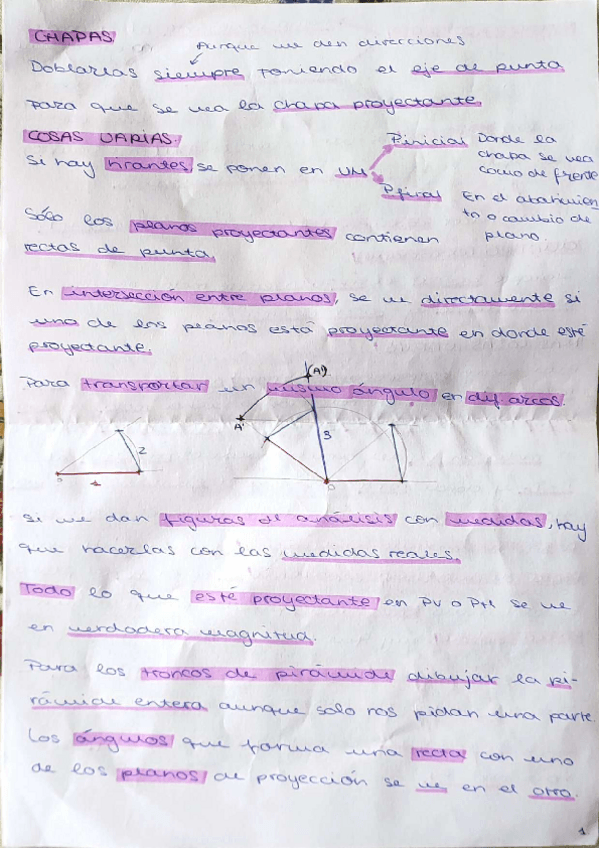 CHAPAS
Aunque me den direcciones
Doblarlas siempre poniendo el eje de punta
para que se vea la chapa proyectante.
COSAS VARIAS.
Si hay tirantes, se ponen en VM
P.inicial Donde la
chapa se vea
como de frente
P.final En el abatimien
to o cambio de
plano.
Sólo los planos proyectantes contienen
rectas de punta.
En intersección entre planos, se ve directamente si
uno de los planos está proyectante en donde esté
proyectante.
Para transportar un mismo ángulo en dif arcos.
(A')
A'
3
2
1
0
Si me dan figuras de análisis con medidas, hay
que hacerlas con las medidas reales.
Todo lo que esté proyectante en PV o PH se ve
en verdadera magnitud.
Para los troncos de pirámide dibujar la pi-
rámide entera aunque solo nos pidan una parte.
Los ángulos que forma una recta con uno
de los planos de proyección se ve en el otro.
1